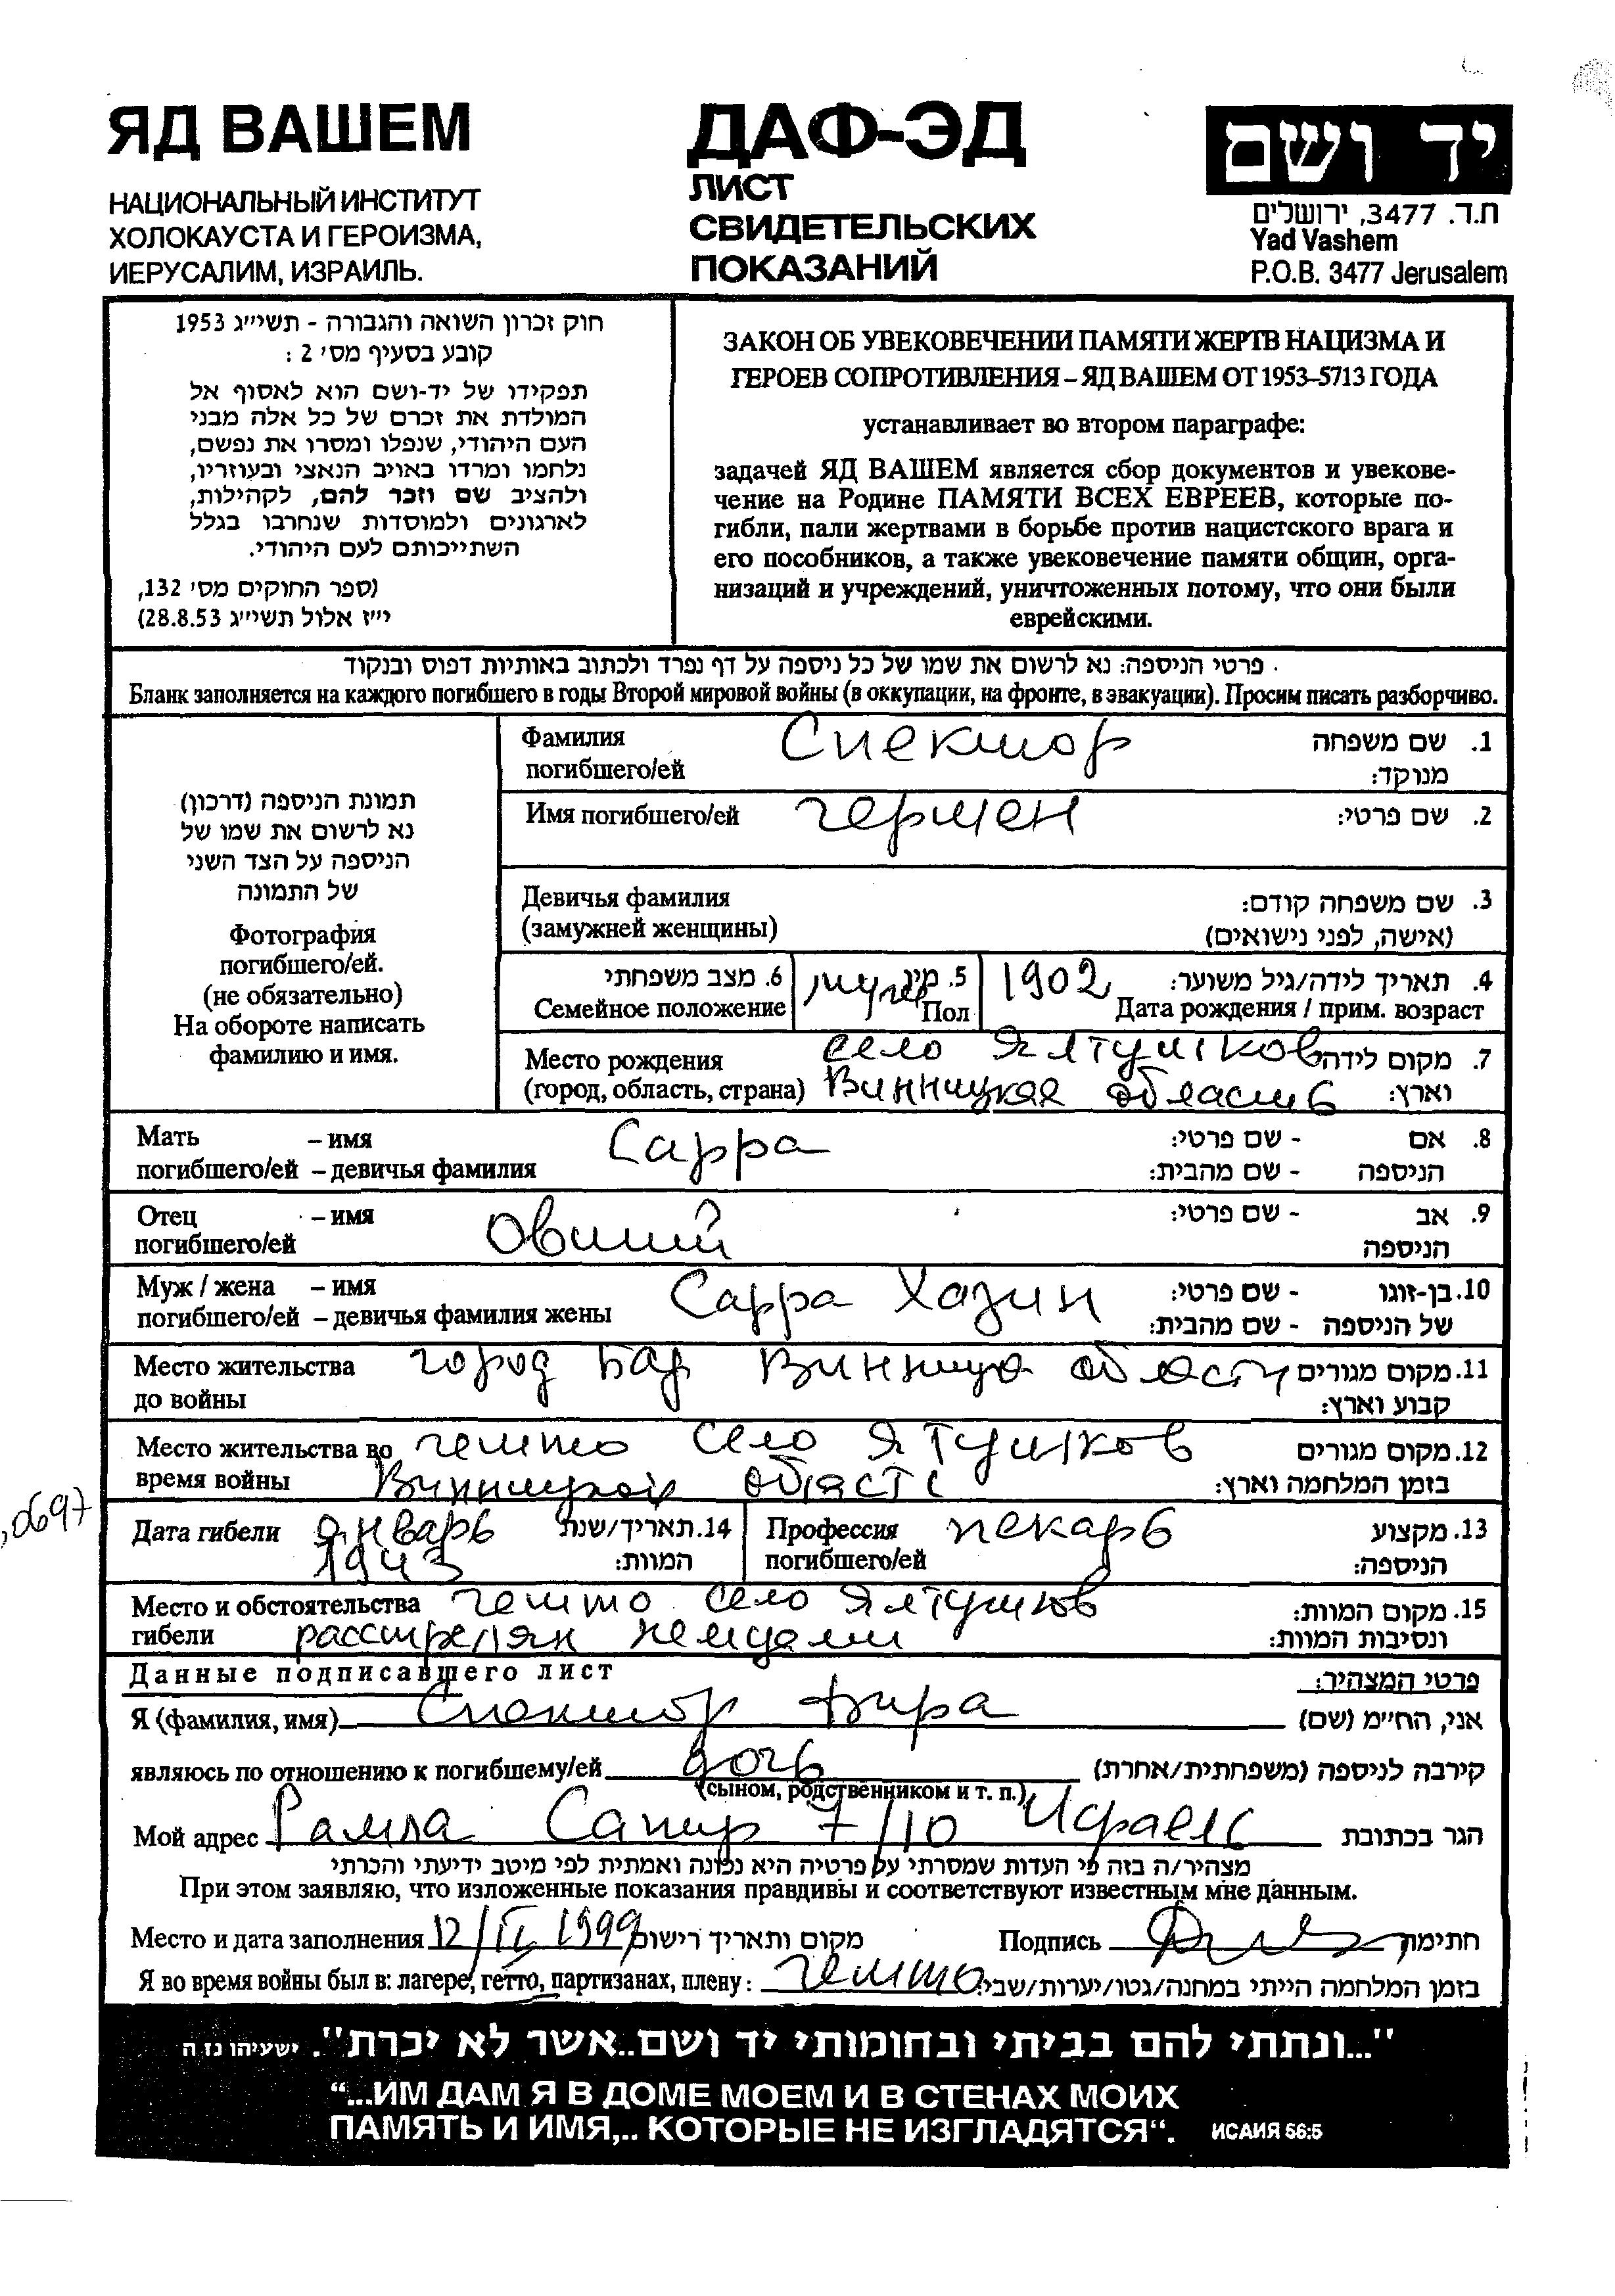 ЯД ВАШЕМ
НАЦИОНАЛЬНЫЙ ИНСТИТУТ
ХОЛОКАУСТА И ГЕРОИЗМА,
ИЕРУСАЛИМ, ИЗРАИЛЬ.
ДАФ-ЭД
ЛИСТ
СВИДЕТЕЛЬСКИХ
ПОКАЗАНИЙ
יד ושם
ת.ד. 3477, ירושלים
Yad Vashem
P.O.B. 3477 Jerusalem
חוק זכרון השואה והגבורה - תשי״ג 1953
קובע בסעיף מס׳ 2 :
תפקידו של יד-ושם הוא לאסוף אל
המולדת את זכרם של כל אלה מבני
העם היהודי, שנפלו ומסרו את נפשם,
נלחמו ומרדו באויב הנאצי ובעוזריו,
ולהציב שם וזכר להם, לקהילות,
לארגונים ולמוסדות שנחרבו בגלל
השתייכותם לעם היהודי.
(ספר החוקים מס׳ 132,
י״ז אלול תשי״ג 28.8.53)
ЗАКОН ОБ УВЕКОВЕЧЕНИИ ПАМЯТИ ЖЕРТВ НАЦИЗМА И
ГЕРОЕВ СОПРОТИВЛЕНИЯ – ЯД ВАШЕМ ОТ 1953–5713 ГОДА
устанавливает во втором параграфе:
задачей ЯД ВАШЕМ является сбор документов и увекове-
чение на Родине ПАМЯТИ ВСЕХ ЕВРЕЕВ, которые по-
гибли, пали жертвами в борьбе против нацистского врага и
его пособников, а также увековечение памяти общин, орга-
низаций и учреждений, уничтоженных потому, что они были
еврейскими.
פרטי הניספה: נא לרשום את שמו של כל ניספה על דף נפרד ולכתוב באותיות דפוס ובנקוד
Бланк заполняется на каждого погибшего в годы Второй мировой войны (в оккупации, на фронте, в эвакуации). Просим писать разборчиво.
תמונת הניספה (דרכון)
נא לרשום את שמו של
הניספה על הצד השני
של התמונה
Фотография
погибшего/ей.
(не обязательно)
На обороте написать
фамилию и имя.
Фамилия Спектор 1. שם משפחה
погибшего/ей מנוקד:
Имя погибшего/ей гершен 2. שם פרטי:
Девичья фамилия 3. שם משפחה קודם:
(замужней женщины) (אישה, לפני נישואים)
6. מצב משפחתי 5. מין 1902 4. תאריך לידה/גיל משוער:
Семейное положение муж Пол Дата рождения / прим. возраст
Место рождения село Ялтушков 7. מקום לידה
(город, область, страна) Винницкая область וארץ:
Мать – имя Сарра - שם פרטי: 8. אם
погибшего/ей – девичья фамилия - שם מהבית: הניספה
Отец – имя Овший - שם פרטי: 9. אב
погибшего/ей הניספה
Муж / жена – имя Сарра Хазин - שם פרטי: 10. בן-זוגו
погибшего/ей – девичья фамилия жены - שם מהבית: של הניספה
Место жительства город Бар 11. מקום מגורים
до войны קבוע וארץ:
Место жительства во гетто село Ятушков 12. מקום מגורים
время войны Винницкой בזמן המלחמה וארץ:
,0697
Дата гибели январь 14. תאריך/שנת Профессия пекарь 13. מקצוע
1943 המוות: погибшего/ей הניספה:
Место и обстоятельства гетто село Ялтушков 15. מקום המוות:
гибели расстрелян немцами ונסיבות המוות:
Данные подписавшего лист פרטי המצהיר:
Я (фамилия, имя) Спектор אני, הח״מ (שם)
являюсь по отношению к погибшему/ей дочь קירבה לניספה (משפחתית/אחרת)
(сыном, родственником и т. п.)
Мой адрес Рамла Сапир 7/10 הגר בכתובת
מצהיר/ה בזה כי העדות שמסרתי על פרטיה היא נכונה ואמתית לפי מיטב ידיעתי והכרתי
При этом заявляю, что изложенные показания правдивы и соответствуют известным мне данным.
Место и дата заполнения 1999 מקום ותאריך רישום Подпись חתימה
Я во время войны был в: лагере, гетто, партизанах, плену: гетто בזמן המלחמה הייתי במחנה/גטו/יערות/שבי:
"...ונתתי להם בביתי ובחומותי יד ושם..אשר לא יכרת". ישעיהו נו ה
“...ИМ ДАМ Я В ДОМЕ МОЕМ И В СТЕНАХ МОИХ
ПАМЯТЬ И ИМЯ,.. КОТОРЫЕ НЕ ИЗГЛАДЯТСЯ“. ИСАИЯ 56:5